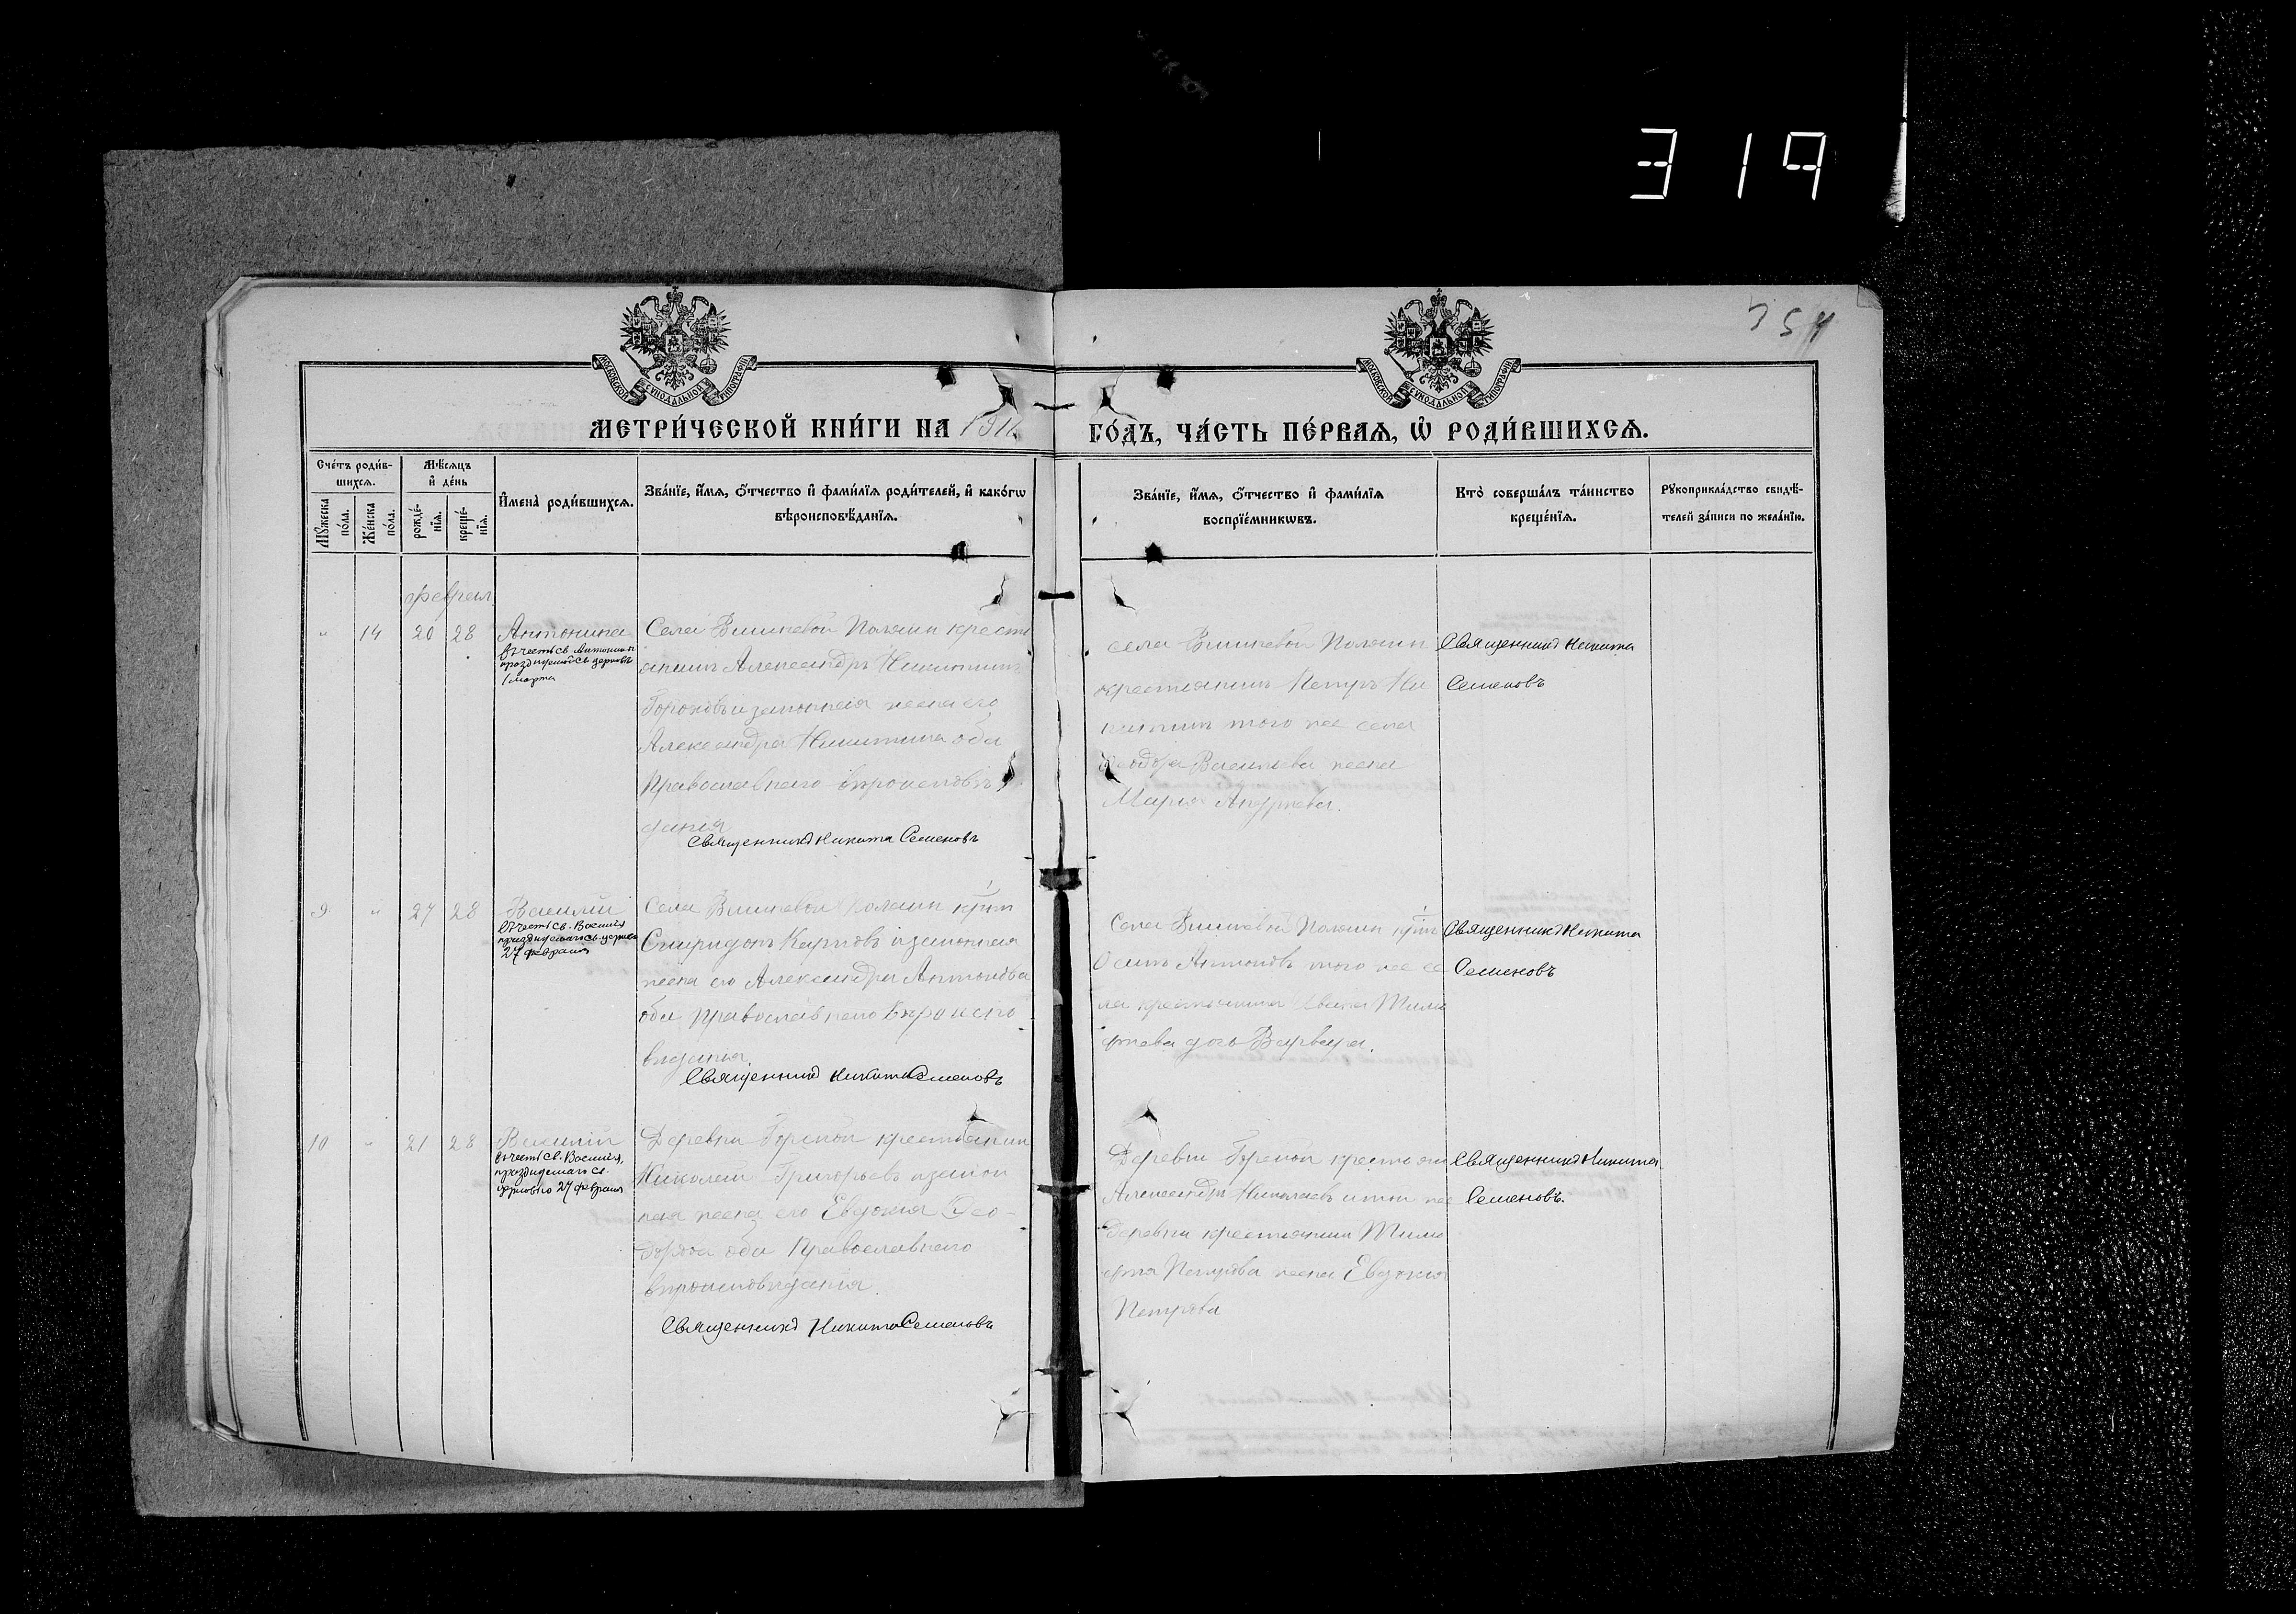 319
354
МОСКОВСКОЙ СѴНОДАЛЬНОЙ ТИПОГРАФІИ
МОСКОВСКОЙ СѴНОДАЛЬНОЙ ТИПОГРАФІИ
МЕТРИ́ЧЕСКОЙ КНИ́ГИ НА 1911
ГО́ДЪ, ЧА́СТЬ ПЕ́РВАѦ, Ѡ҆ РОДИ́ВШИХСѦ.
Сче́тъ роди́в-
шихсѧ.
Мѣ́сѧцъ
и҆ де́нь
Мꙋ́жеска
по́ла.
Же́нска
по́ла.
рожде́-
нїѧ.
креще́-
нїѧ.
И҆мена̀ роди́вшихсѧ.
Зва́нїе, и҆́мѧ, ѻ҆́тчество и҆ фами́лїѧ роди́телей, и҆ како́гѡ
вѣроисповѣ́данїѧ.
Зва́нїе, и҆́мѧ, ѻ҆́тчество и҆ фами́лїѧ
воспрїе́мникѡвъ.
Кто̀ соверша́лъ та́инство
креще́нїѧ.
Рꙋкоприкла́дство свидѣ́-
телей за́писи по жела́нїю.
феврал
" 14 20 28 Антонина
въ честь св. Антонины
празднуемой св. церковью
1 марта
Села Вишневой Поляны крестьянинъ Александръ Никитинъ
и законная жена его
Александра Никитина оба
Православнаго вѣроисповѣ
данія
Священникъ Никита Семеновъ
села Вишневой Поляны
крестьянинъ Петръ Ни
китинъ того же села
Ѳеодора Васильева жена
Марія Андреева.
Священникъ Никита
Семеновъ
9 " 27 28 Василій
въ честь св. Василія
празднуемаго св. церковью
27 февраля
Села Вишневой Поляны крест
Спиридонъ Карповъ и законная
жена его Александра Антонова
оба Православнаго вѣроиспо
виданія
Священникъ Никита Семеновъ
Села Вишневой Поляны крест
Осипъ Антоновъ того же се
ла крестьянина Ивана Тимо
феева дочь Варвара.
Священникъ Никита
Семеновъ
10 " 21 28 Василій
въ честь св. Василія,
празднуемаго св.
церковью 27 февраля
Деревни крестьянин
Николай Григорьевъ и закон
ная жена его Евдокія Ѳео-
дорова оба Православнаго
вѣроисповиданія.
Священникъ Никита Семеновъ
Деревни крестьян
Александръ Николаевъ и той же
деревни крестьянина Тимо
фея Петрова жена Евдокія
Петрова
Священникъ Никита
Семеновъ.